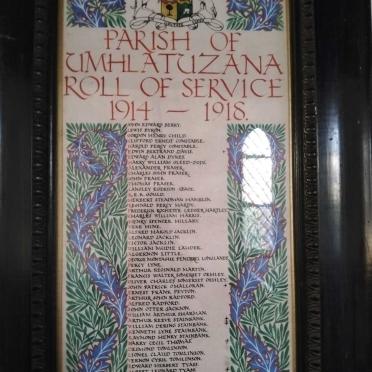 PARISH OF
UMHLATUZANA
ROLL OF SERVICE
1914 – 1918.
JOHN EDWARD BERRY.
LEWIS BYRON.
GORDON HENRY CHILD.
CLIFFORD ERNEST CONSTABLE.
HAROLD PERCY CONSTABLE.
EDWIN BERTRAND DAVIE.
EDWARD ALAN DYKES
HARRY WILLIAM
ALEXANDER FRASER.
CHARLES JOHN FRASER.
JOHN FRASER.
THOMAS FRASER.
LANGLEY
GOULD.
HERBERT STEADMAN HAMBLIN.
REGINALD PERCY HARDY.
FREDERICK
CHARLES WILLIAM HARRIS.
HENRY SPENCER HILLARY.
VERE HIME.
ALFRED HAROLD JACKLIN.
LEONARD JACKLIN.
VICTOR JACKLIN.
WILLIAM
ALGERNON LITTLE.
GEORGE MONTAGUE
PERCY LYNE.
ARTHUR REGINALD MARTIN.
FRANCIS WALTER SOMERSET ORTLEY.
OLIVER CHARLES SOMERSET ORTLEY.
JOHN PATRICK O'HALLORAN.
ERNEST FRANK PEYTON.
ARTHUR JOHN RADFORD.
ALFRED RADFORD.
JOHN OTTER JACKSON.
WILLIAM ARTHUR SHARMAN.
ARTHUR REEVE STAINBANK.
WILLIAM DERING STAINBANK.
KENNETH LYNE STAINBANK.
RAYMOND HENRY STAINBANK.
HARRY CECIL THOMAS.
TOMLINSON.
LIONEL CLAUD TOMLINSON.
VERNON CYRIL TOMLINSON.
EDWARD HERBERT TYASS.
TYASS.